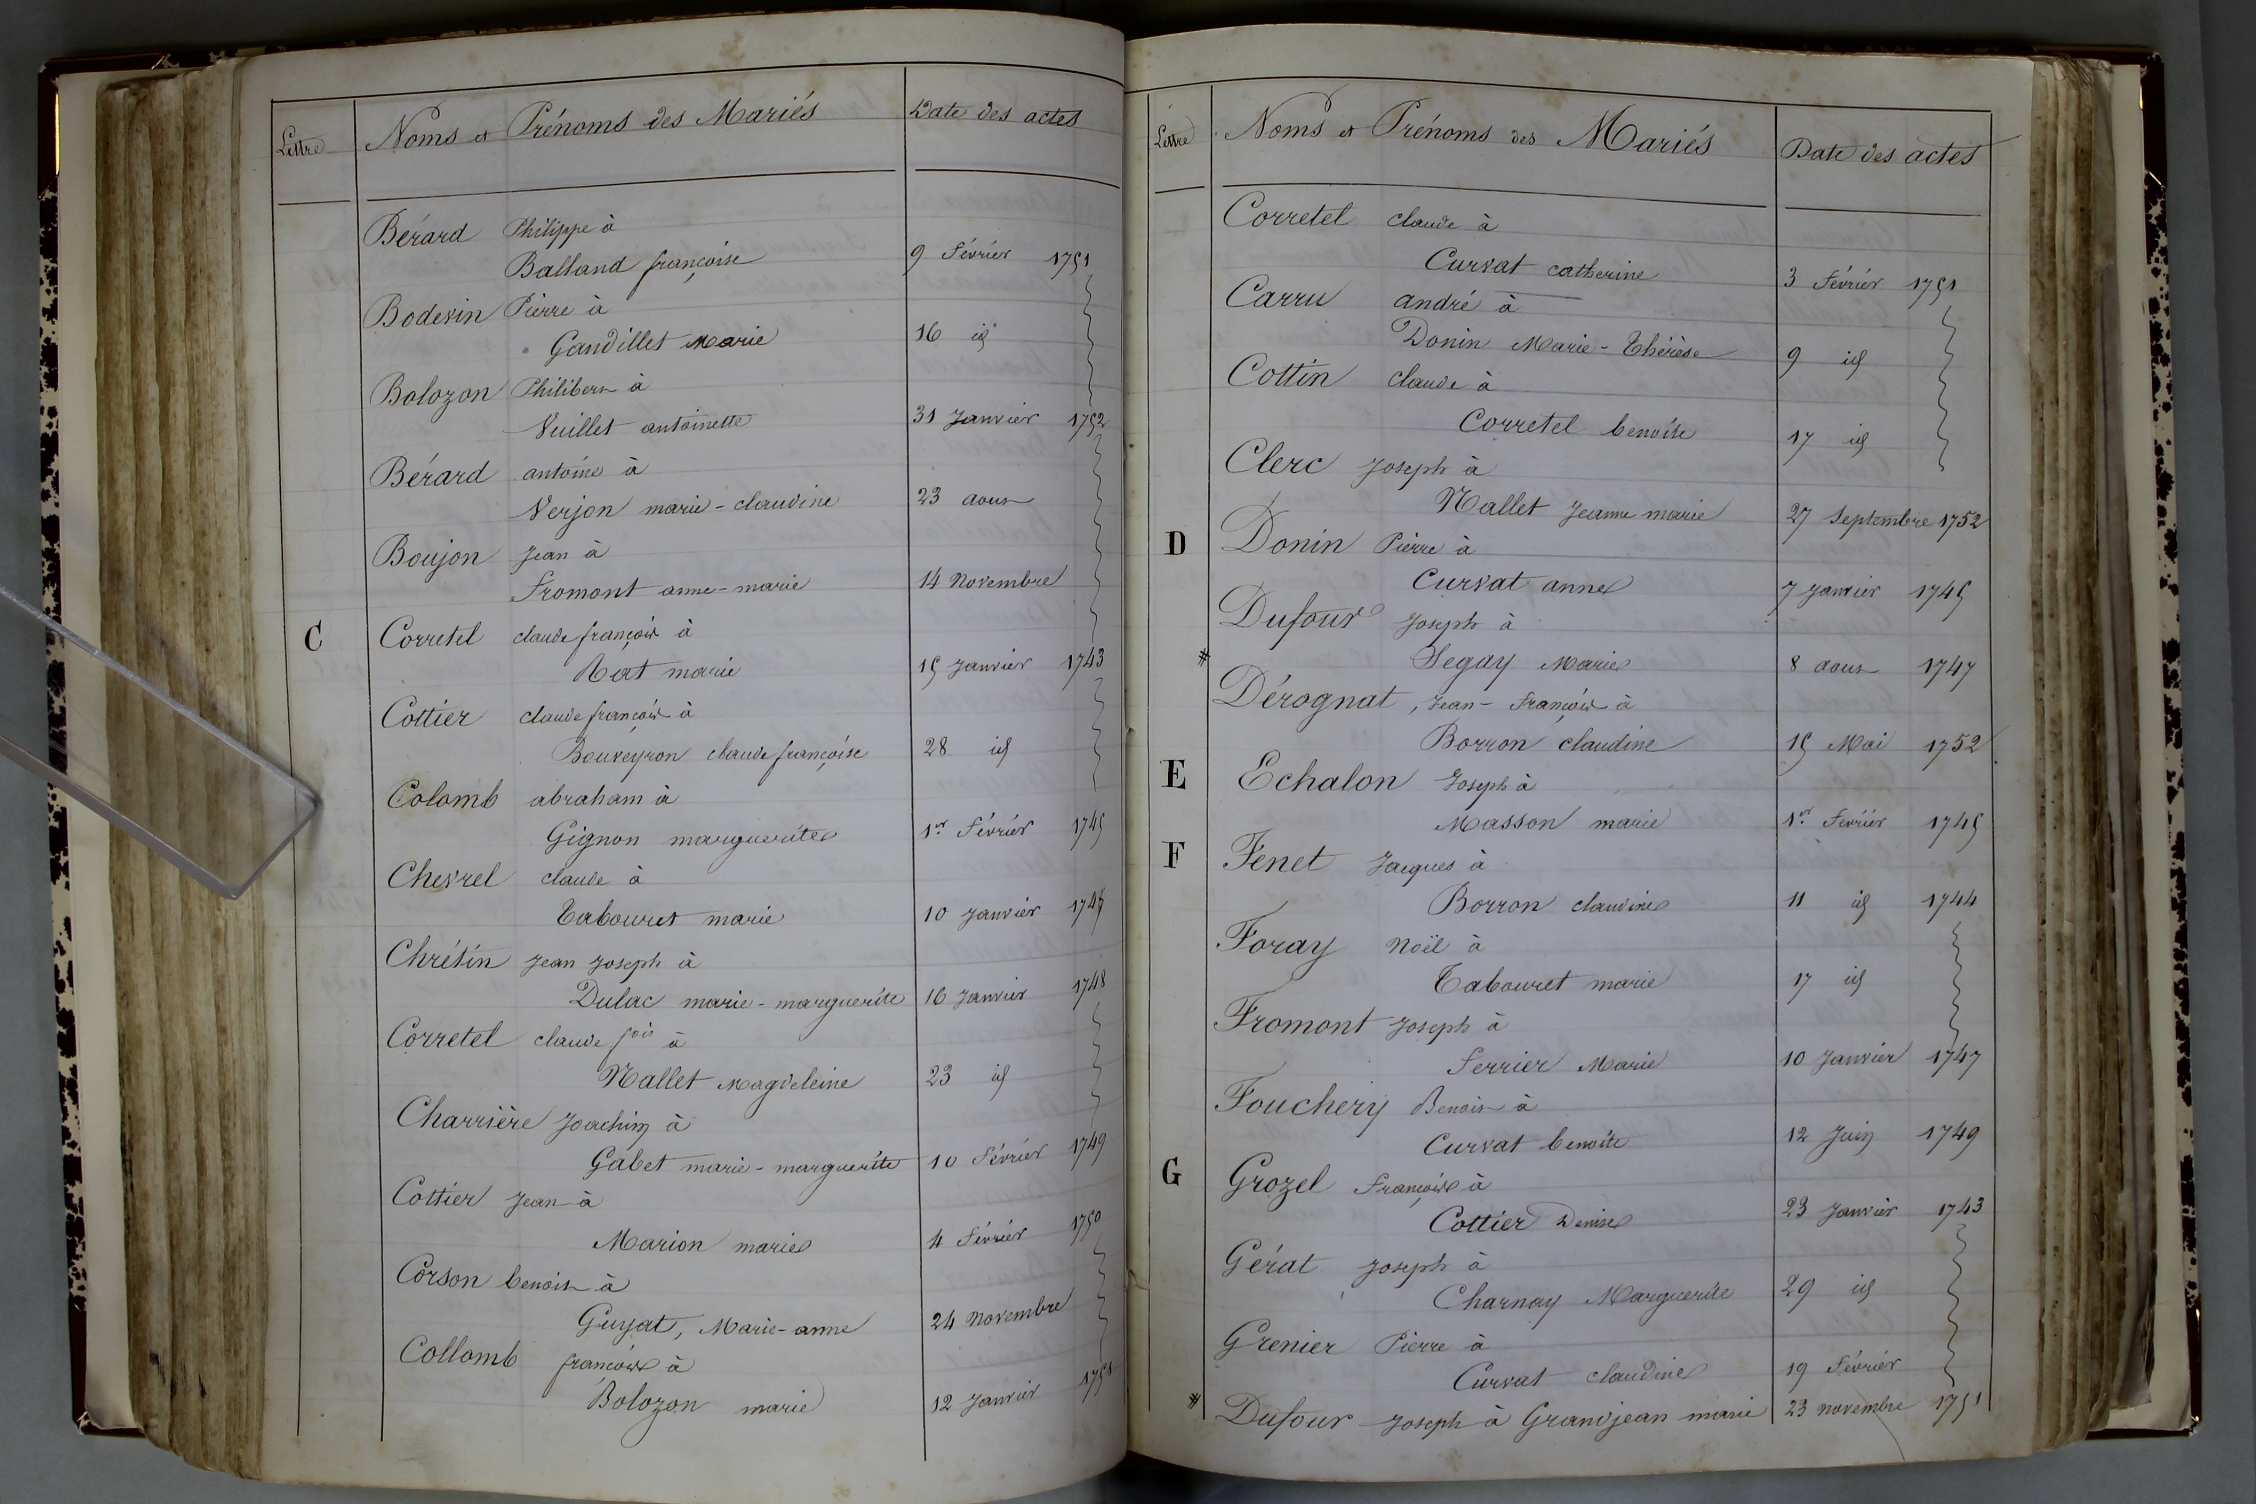 Lettre Noms et Prénoms des Mariés Date des actes
Bérard Philippe à
Balland françoise 9 Février 1751
Bodevin Pierre à
Gandillet Marie 16 id
Bolozon Philibert à
Vuillet antoinette 31 Janvier 1752
Bérard antoine à
Verjon marie-claudine 23 aout
Boujon Jean à
Fromont anne-marie 14 Novembre
C Corretel claude françois à
Rat marie 15 Janvier 1743
Cottier claude françois à
Bouveyron claude françoise 28 id
Colomb abraham à
Gignon marguerite 1er Février 1745
Chevrel claude à
Tabouret marie 10 Janvier 1747
Chrétin Jean Joseph à
Dulac marie-marguerite 16 Janvier 1748
Corretel claude fois à
Nallet Magdeleine 23 id
Charrière Joachim à
Gabet marie-marguerite 10 Février 1749
Cottier Jean à
Marion marie 4 Février 1750
Corson benoit à
Guyat, Marie-anne 24 Novembre
Collomb françois à
Bolozon marie 12 Janvier 1751
Lettre Noms et Prénoms des Mariés Date des actes
Corretel claude à
Curvat catherine 3 Février 1751
Carru andré à
Donin Marie-Thérèse 9 id
Cottin claude à
Corretel benoite 17 id
Clerc Joseph à
Nallet Jeanne marie 27 Septembre 1752
D Donin Pierre à
Curvat anne 7 Janvier 1745
Dufour Joseph à
# Segay Marie 8 aout 1747
Dérognat, Jean-François à
Borron claudine 15 Mai 1752
E Echalon Joseph à
Masson marie 1er Février 1745
F Fenet Jacques à
Borron claudine 11 id 1744
Foray Noël à
Tabouret marie 17 id
Fromont Joseph à
Ferrier Marie 10 Janvier 1747
Fouchery Benoit à
Curvat benoite 12 Juin 1749
G Grozel François à
Cottier Denise 23 Janvier 1743
Gérat Joseph à
Charnay Marguerite 29 id
Grenier Pierre à
Curvat claudine 19 Février
# Dufour Joseph à Grandjean marie 23 novembre 1751